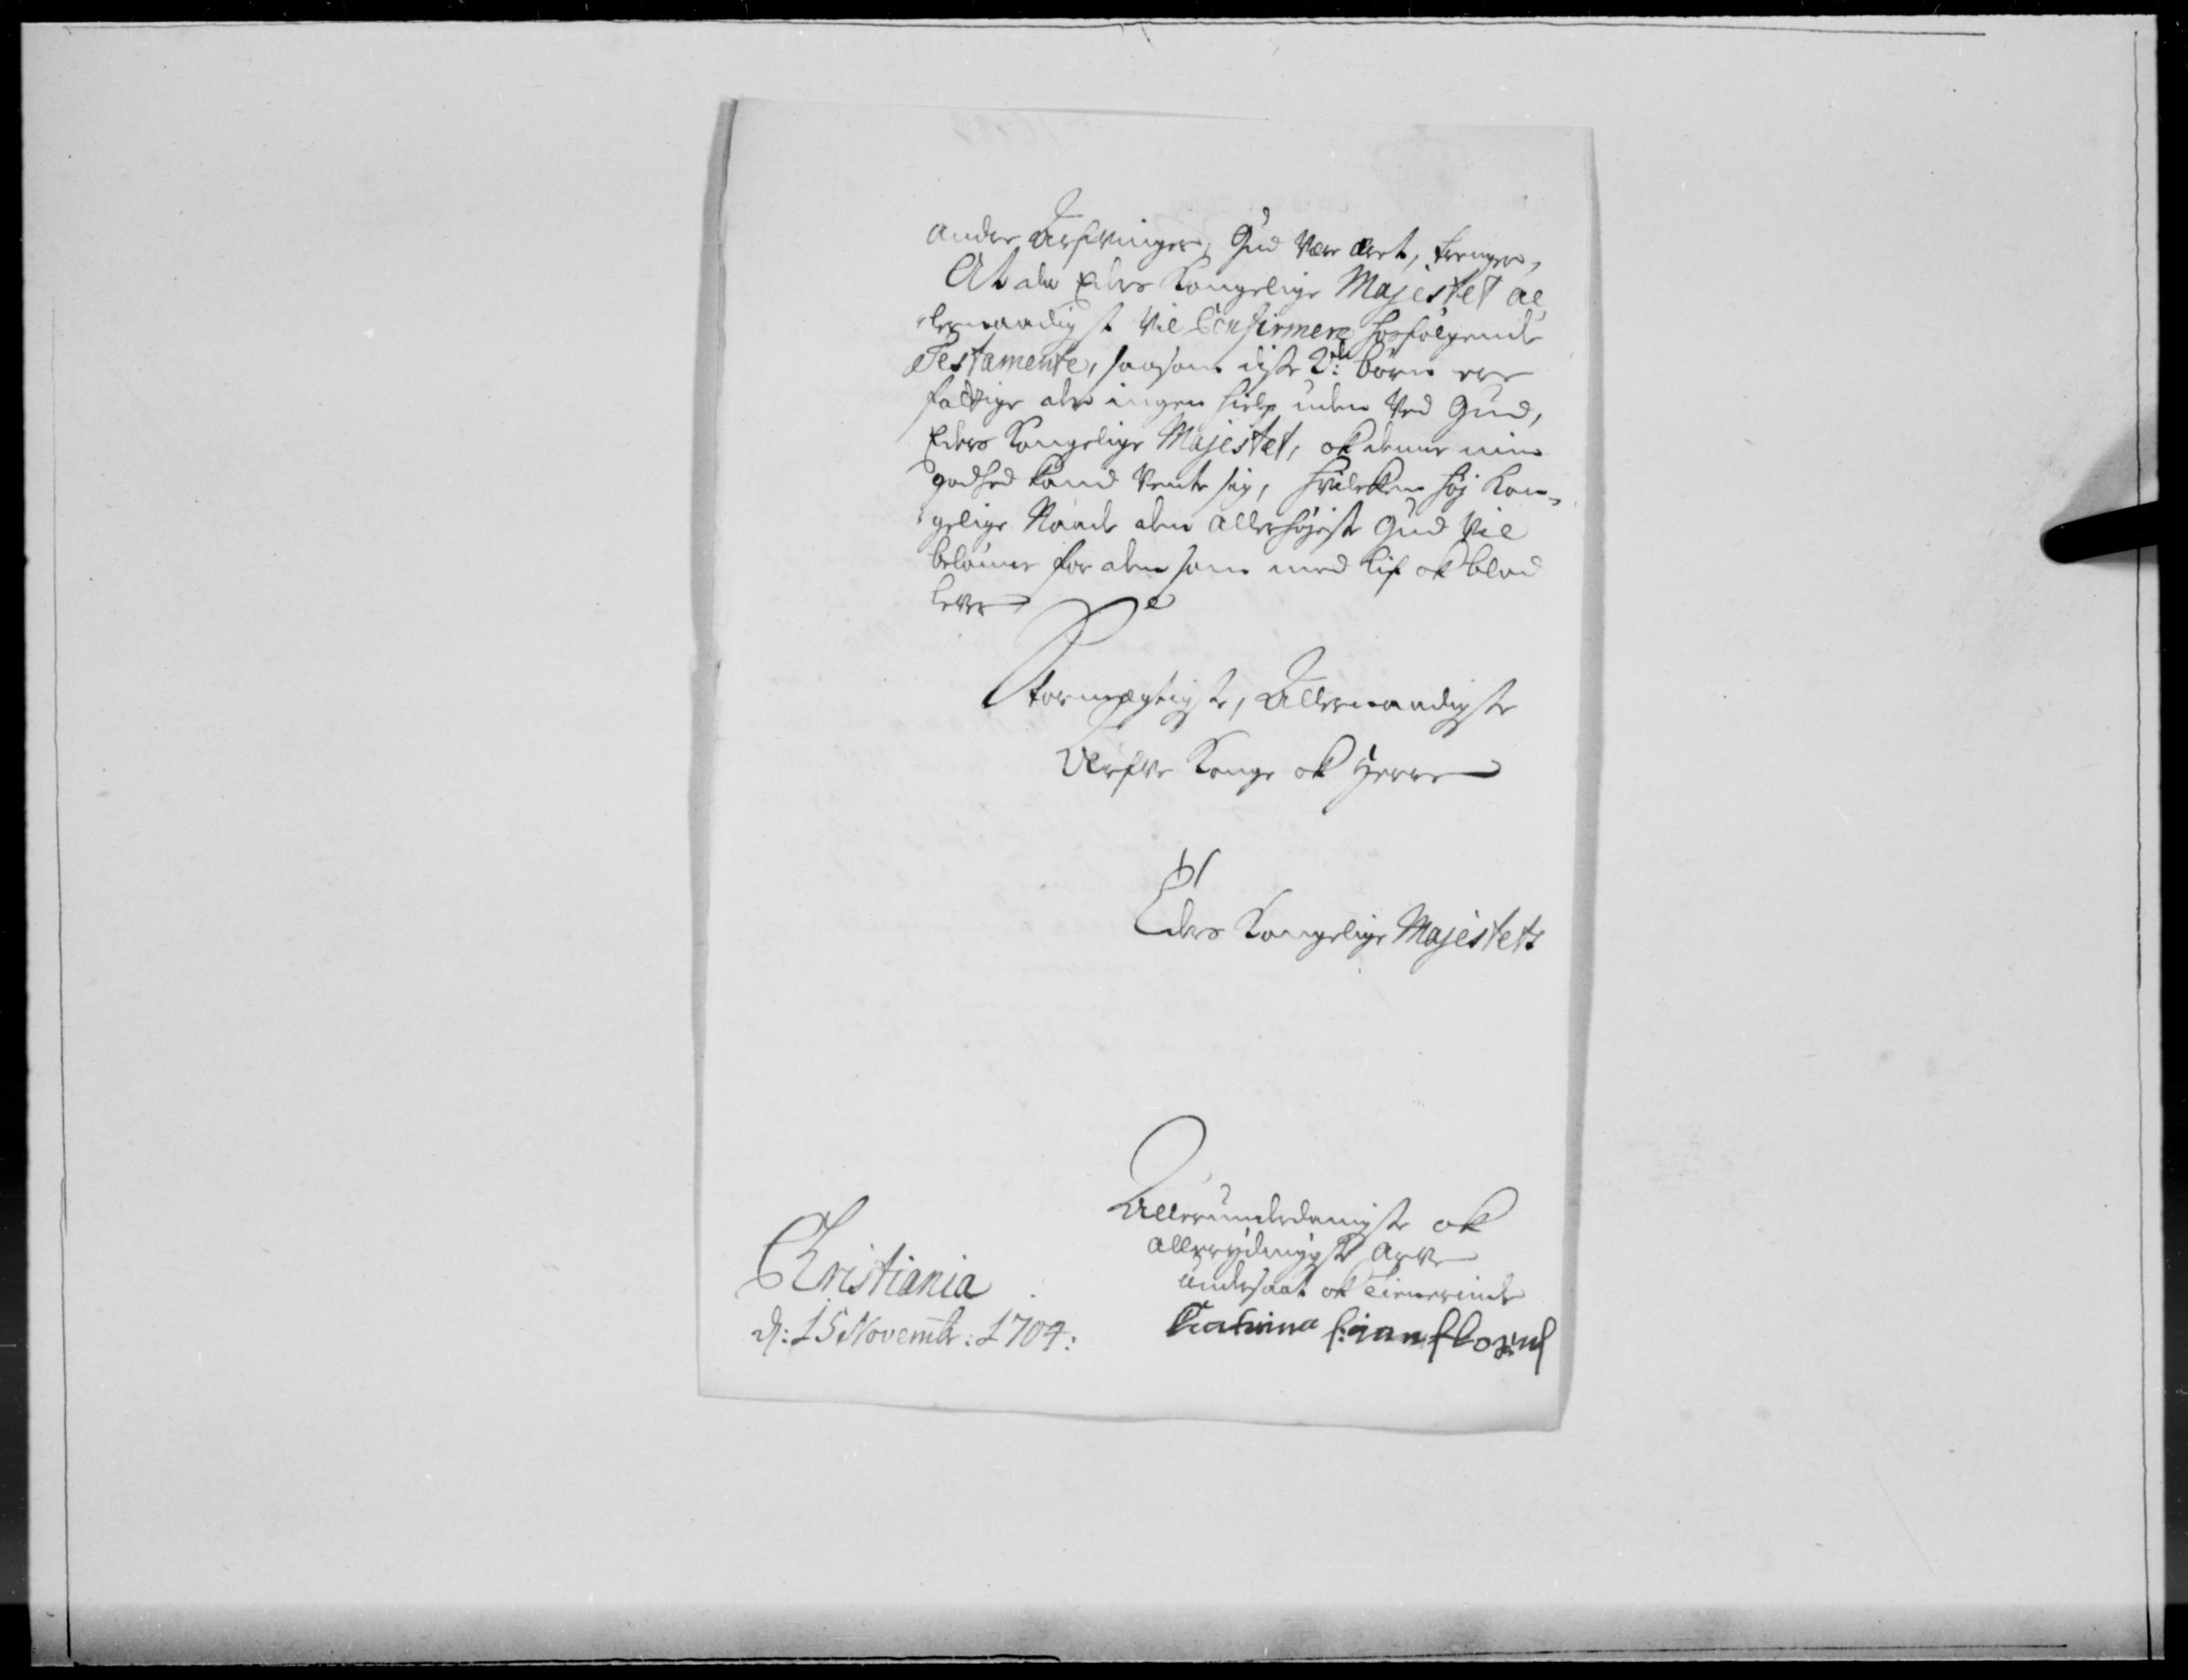 andre Arfvinger, Gud være æret, trenger,
At da Eders Kongelige Majestet al
lernaadigst vil Confirmere hosfølgende
Testamente, saasom disse 2de: børn ere
fattige oc ingen hielp uden ved Gud,
Eders Kongelige Majestet, ok denne min
godhed kand vente sig, hvilcken høj Kon-
gelige Naade den allerhøjeste Gud vil
belønne for den som med lif ok blod
lever
Stormægtigste, Allernaadigste
Arfve Konge ok Herre
Eders Kongelige Majestets
Allerunderdanigste ok
allerydmygste arve
undersaat ok Tienerinde
Catrina
Christiania
d: 15 Novembr: 1704: